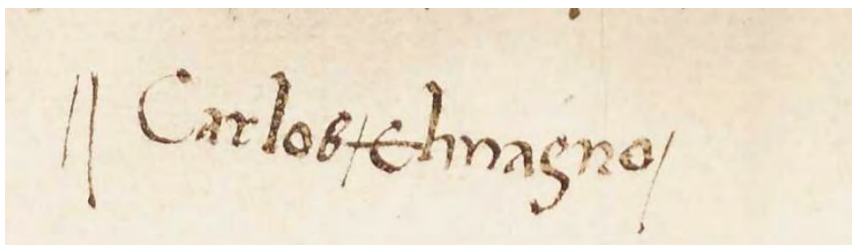 // Carlos / Elmagno /